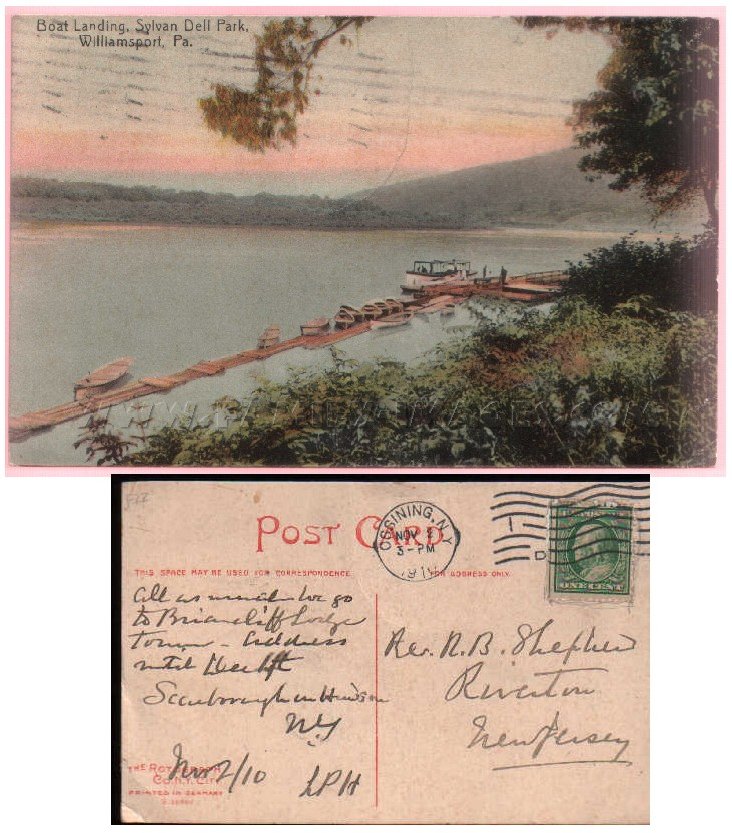 Boat Landing, Sylvan Dell Park,
Williamsport, Pa.
POST CARD
OSSINING, N.Y.
NOV 2
3-PM
1910
THIS SPACE MAY BE USED FOR CORRESPONDENCE
FOR ADDRESS ONLY.
ONE CENT
All as usual we go
to Briarcliff Lodge
address
until Dec 1st
Scarborough on Hudson
N.Y
Nov 2/10 LPH
Rev. R. B. Shepher
Riverton
New Jersey
THE ROTOGRAPH
CO. N.Y. CITY
PRINTED IN GERMANY